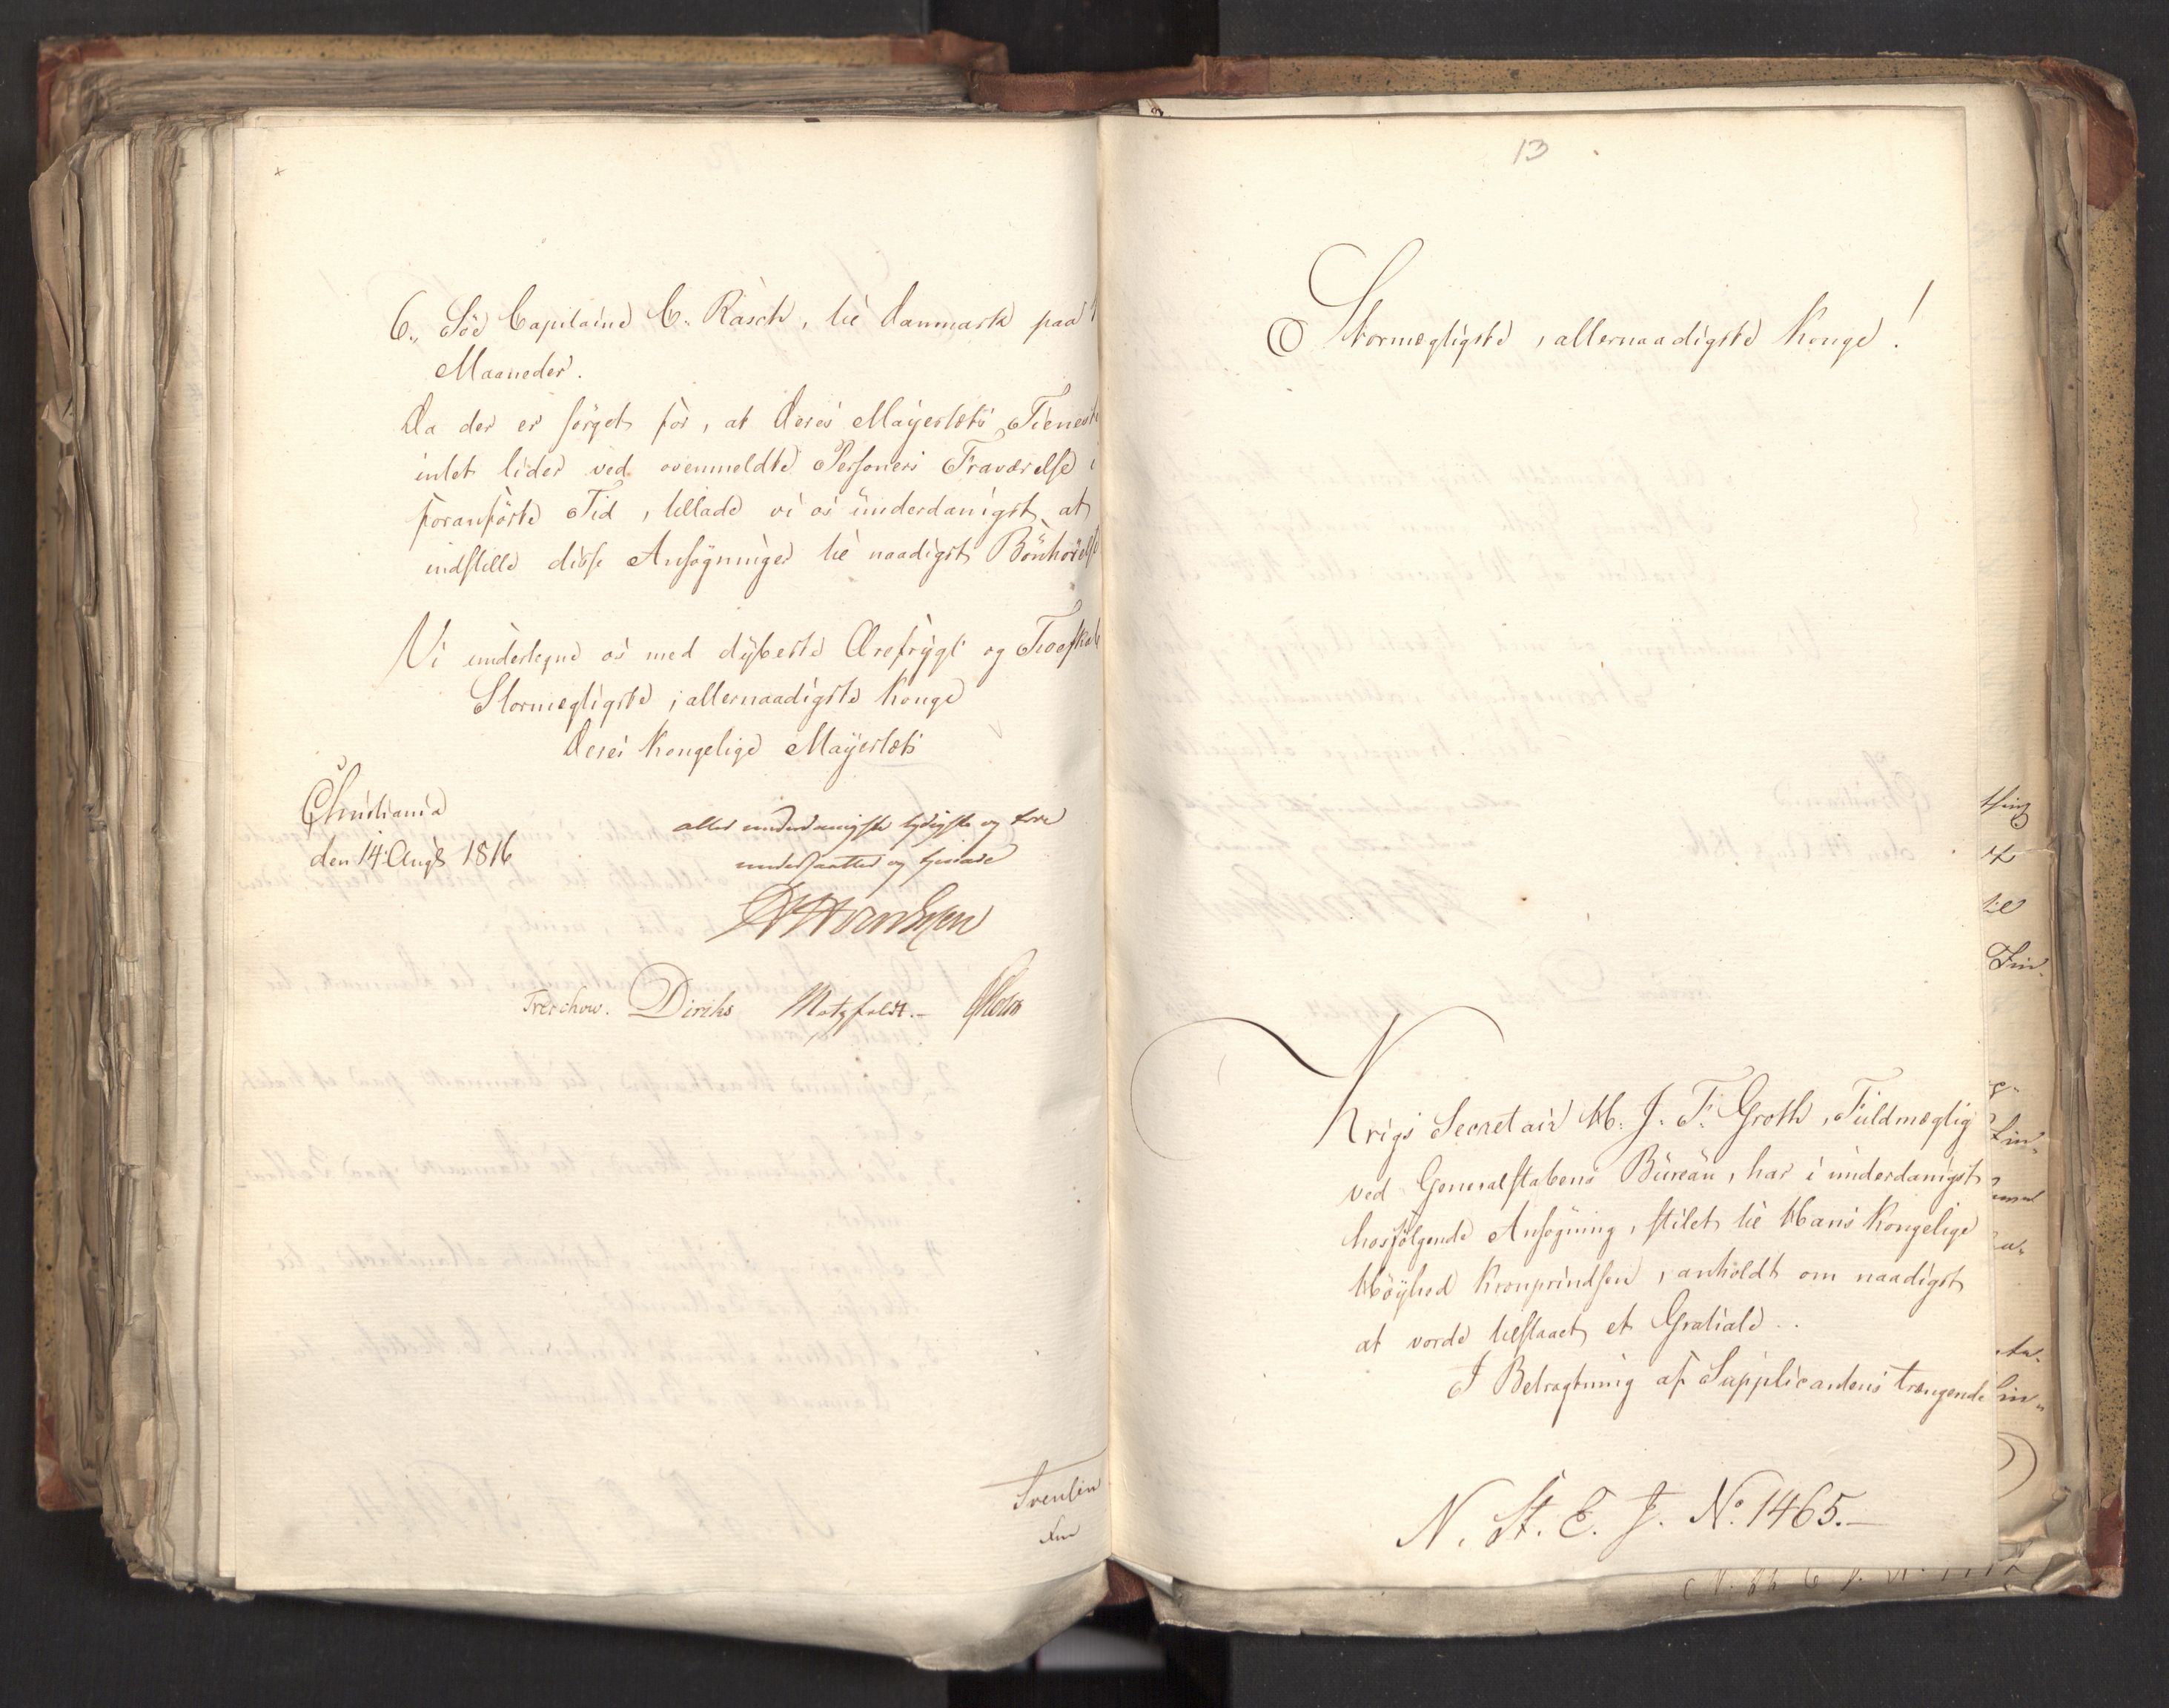 6., Söe Capitaine C. Rasch, til Danmark paa
Maaneder.
Da der er sörget for, at Deres Mayestæts Tieneste
intet lider ved ovenmeldte Personers Fraværelse i
foranförte Tid, tillade vi os underdanigst at
indstille disse Ansögninger til naadigst Bönhörelse
Vi undertegne os med dybeste Ærefrygt og Troeskab
Stormegtigste, allernaadigste Konge
Deres Kongelige Mayestæts
Christiania
den 14. Aug. 1816
aller underdanigste lydigste og troe
undersaatter og tjenere
Treschow. Diriks Motzfeldt.
13
Stormegtigste, allernaadigste Konge!
Krigs Secretair H. J. F. Groth, Fuldmegtig
ved Generalstabens Büreau, har i underdanigst
hosfölgende Ansögning, stilet til Hans Kongelige
Höyhed Kronprindsen, anholdt om naadigst
at vorde tilstaaet et Gratiale.
I Betragtning af Supplicantens trængende
N. St. E. J. No. 1465.